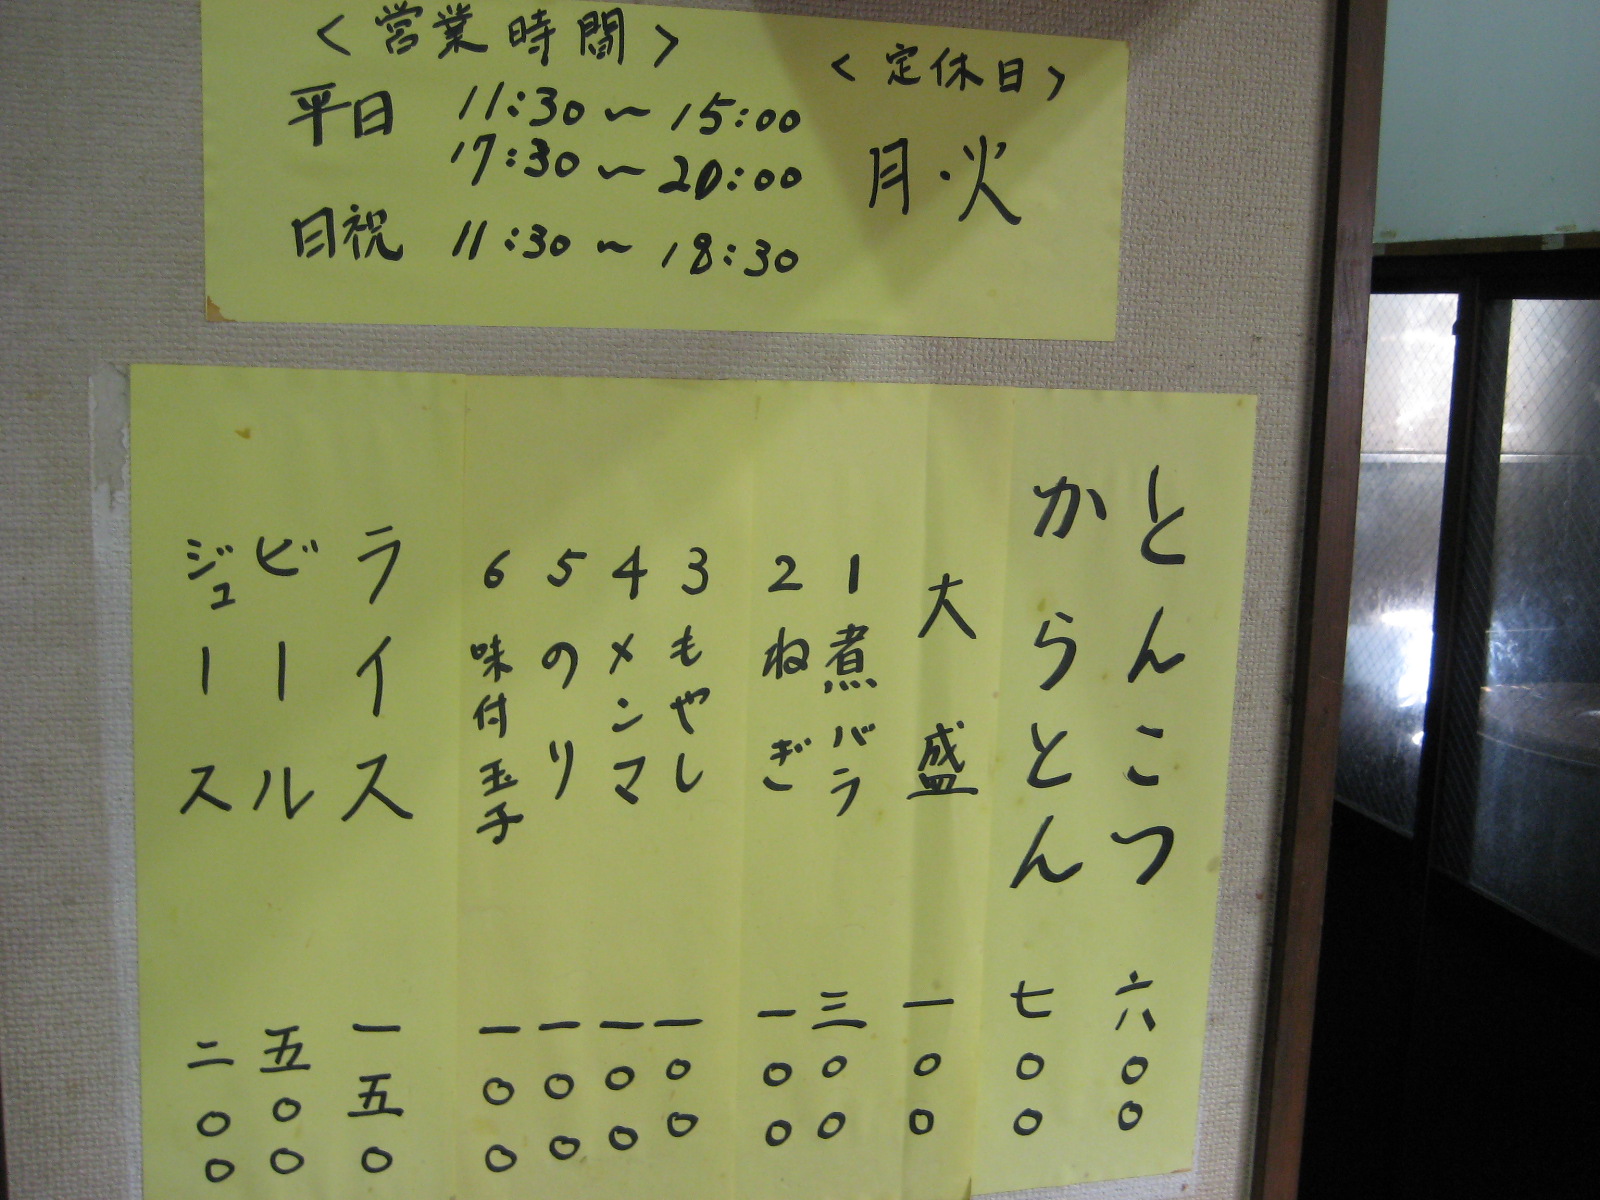 <営業時間>
平日 11:30～15:00
17:30～20:00
日祝 11:30～18:30
<定休日>
月・火
とんこつ 六〇〇
からとん 七〇〇
大盛 一〇〇
1煮バラ 三〇〇
2ねぎ 一〇〇
3もやし 一〇〇
4メンマ 一〇〇
5のり 一〇〇
6味付玉子 一〇〇
ライス 一五〇
ビール 五〇〇
ジュース 二〇〇